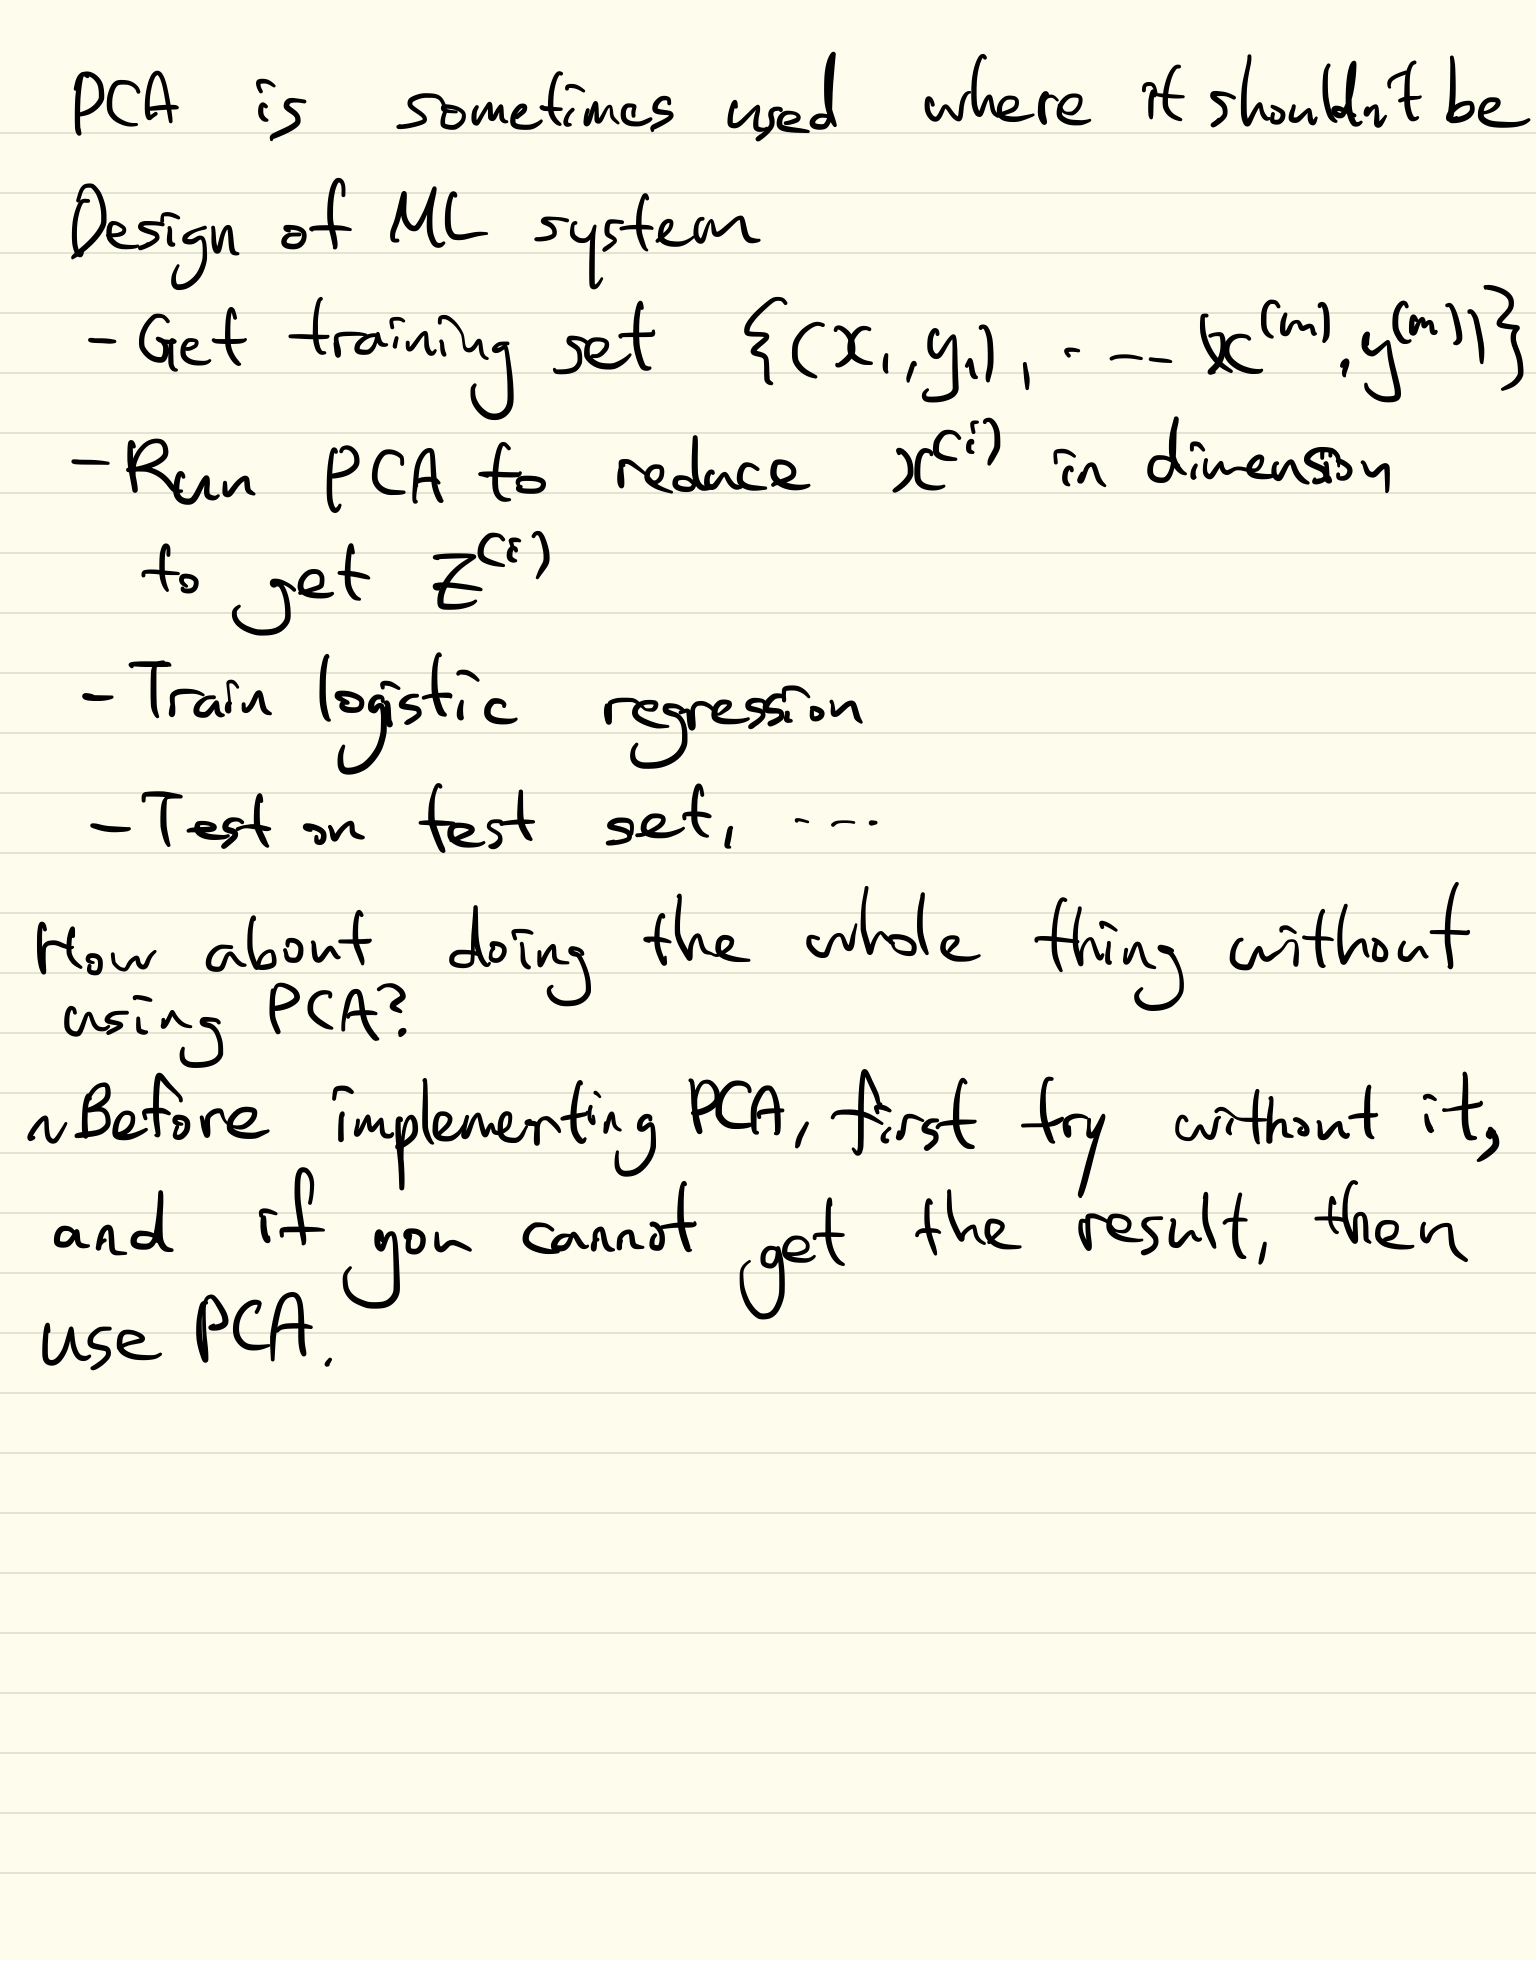 PCA is sometimes used where it shouldn't be
Design of ML system
- Get training set {(x₁,y₁), ..... (x⁽ᵐ⁾,y⁽ᵐ⁾)}
- Run PCA to reduce x⁽ⁱ⁾ in dimension
to get z⁽ⁱ⁾
- Train logistic regression
- Test on test set, ...
How about doing the whole thing without
using PCA?
~Before implementing PCA, first try without it,
and if you cannot get the result, then
use PCA.